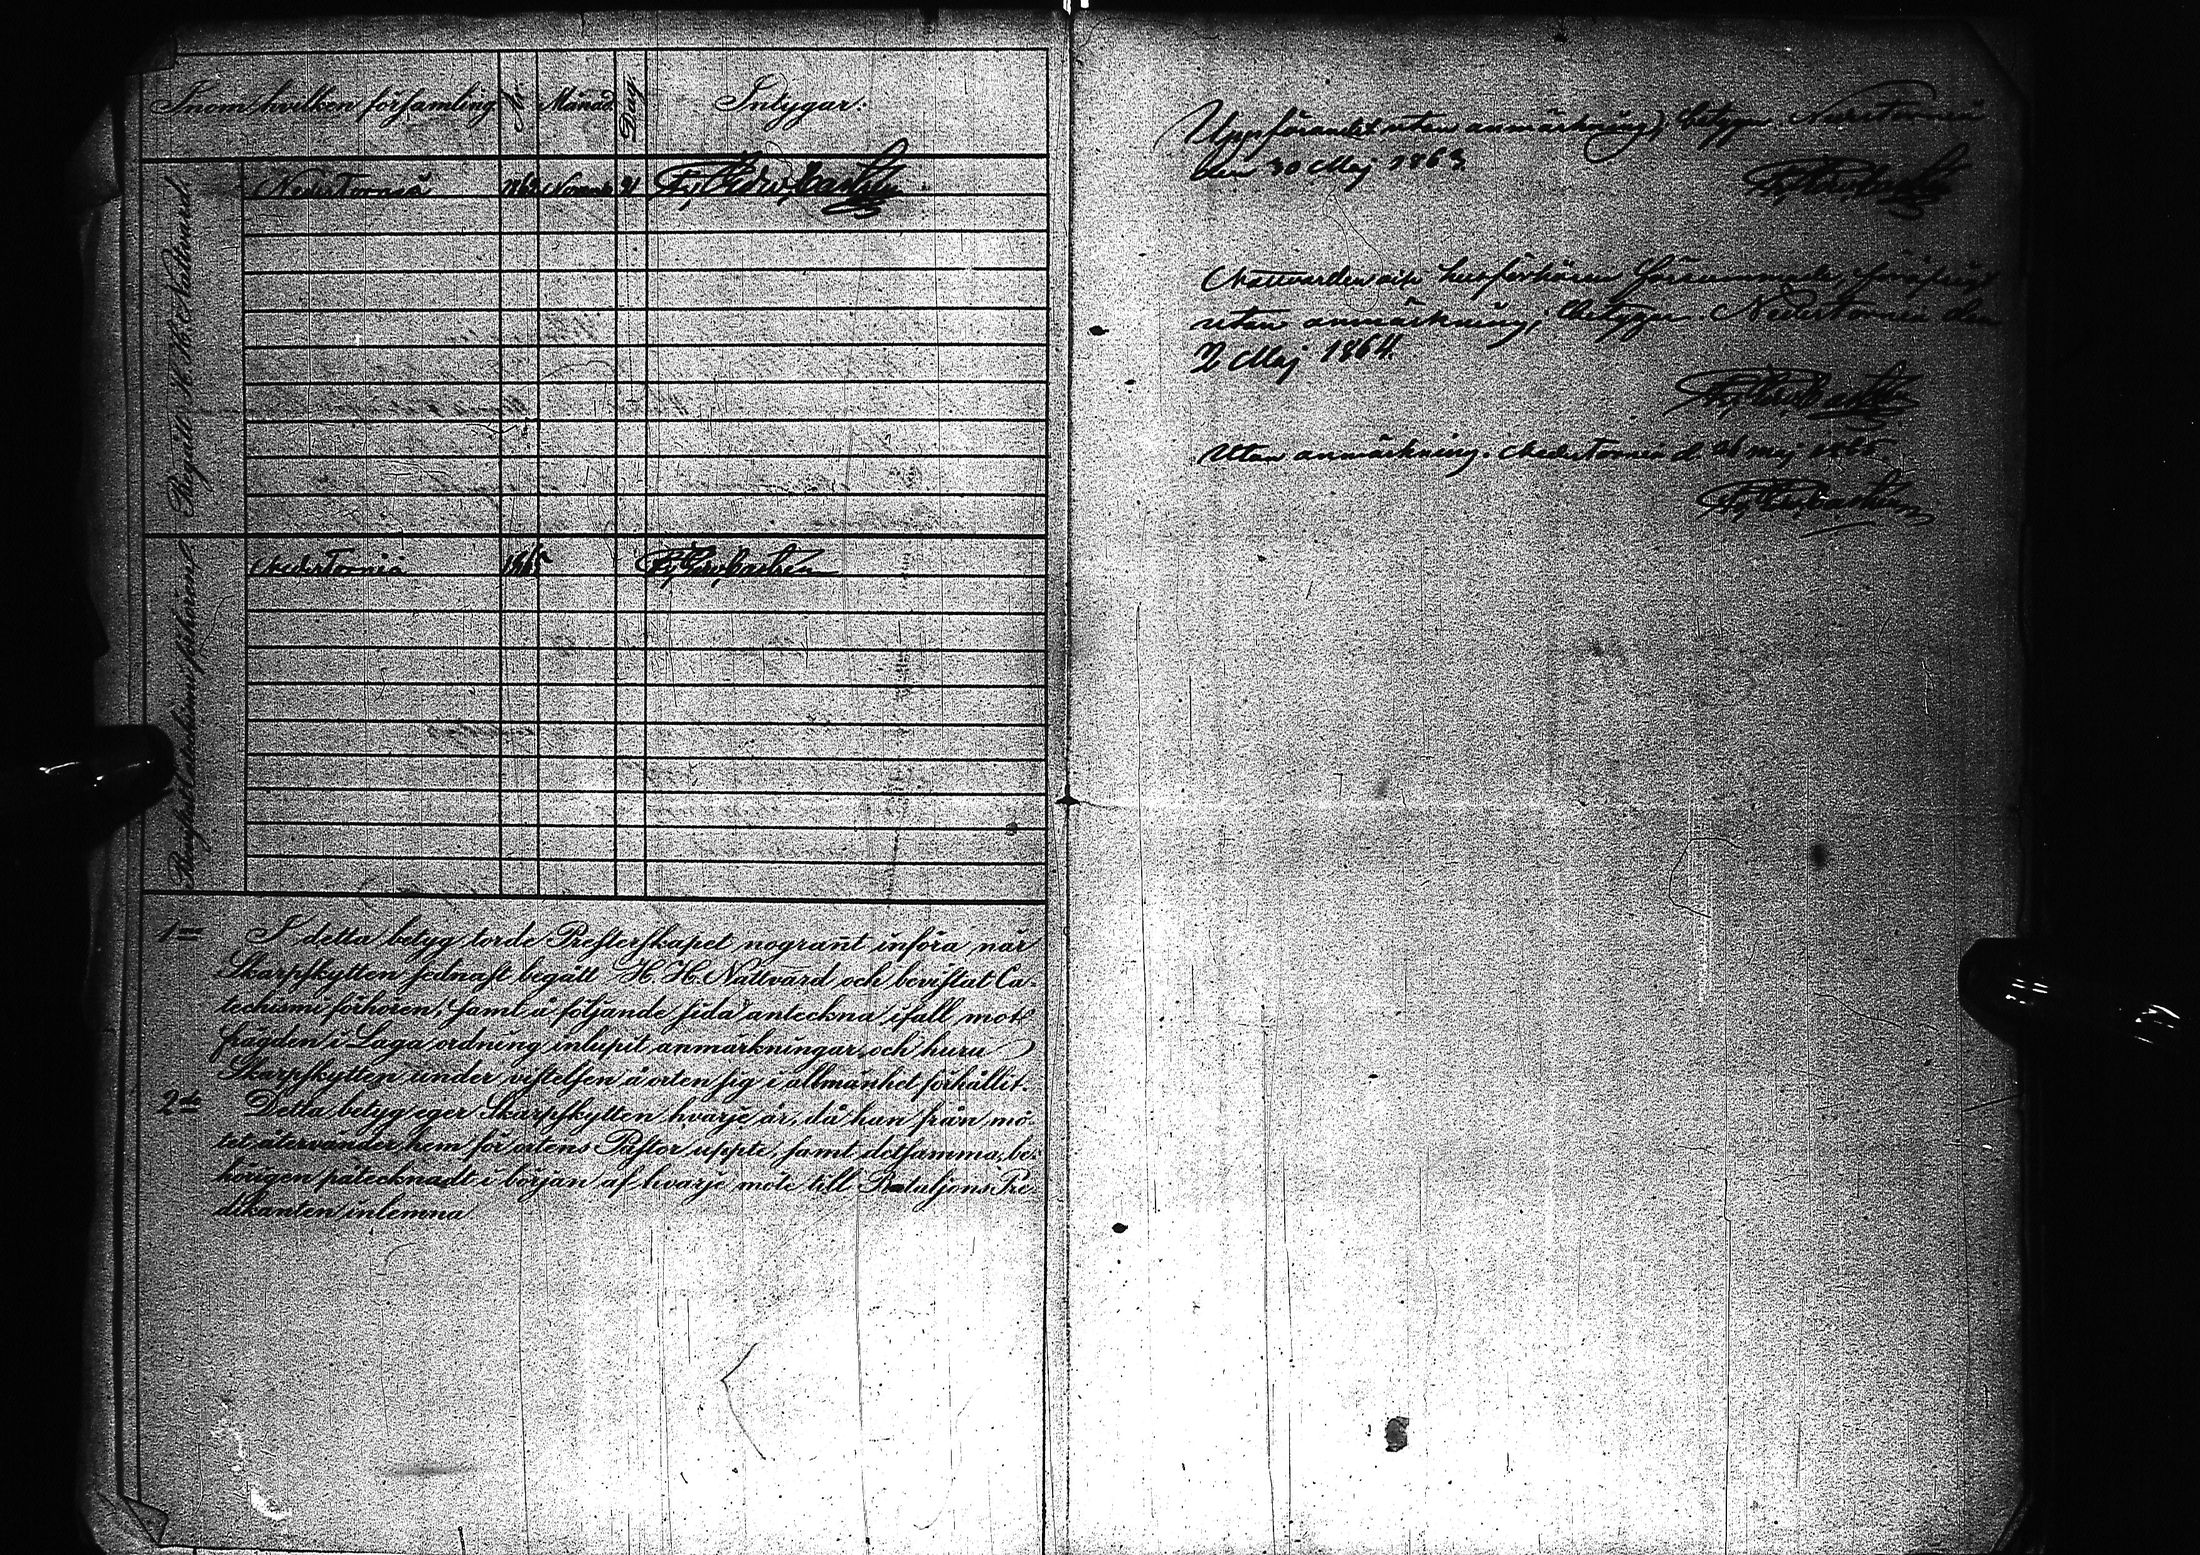 Inom hvilken församling År Månad Dag Intygar:
Begått H. H. Nattvard
NederTorneå 1862 Novemb 21 Fr. Edv. Castrén
Bevistat Catechismi förhören
NederTorneå 1865 Fr. Edv. Castrén
1:o I detta betyg torde Presterskapet nogrannt införa når
Skarpskytten sednast begått H. H. Nattvard och bevistat Ca-
techismi förhören, samt å följande sida anteckna ifall mot
frägden i Laga ordning inlupit anmärkningar och huru
Skarpskytten under vistelsen å orten sig i allmänhet förhållit.
2:do Detta betyg eger Skarpskytten hvarje år, då han från mö-
tet återvänder hem för ortens Pastor uppte, samt detsamma, be-
hörigen påtecknadt i början af hvarje möte till Bataljons Pre-
dikanten inlemna
Uppförandet utan anmärkning, betygar. NederTorneå
den 30 Maj 1863.
Fr. Edv. Castrén
Nattvarden och husförhören försummade, föröfrigt
utan anmärkning; betygar. NederTorneå den
2 Maj 1864.
Fr. Edv. Castrén
Utan anmärkning. NederTorneå d. 21 maj 1865.
Fr. Edv. Castrén